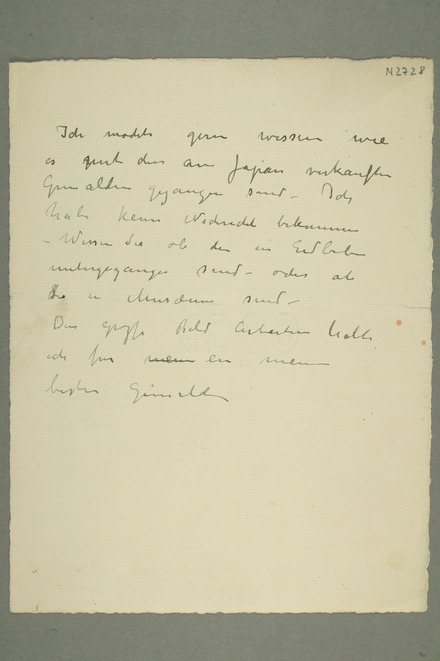 N2728
Ich möchte gern wissen wie
es mit den an Japan verkauften
Gemälden gegangen sind – Ich
habe keine Nachricht bekommen
– Wissen Sie ob die im Erdbeben
untergegangen sind – oder ob
Sie in Museum sind –
Das große Bild Arbeiter halte
ich für ein meine
besten Gemälde